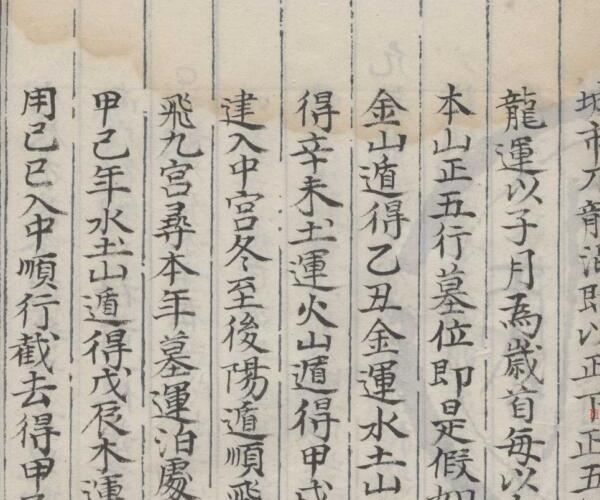 龍運以子月為歲首每以
本山正五行墓位即是假如
金山遁得乙丑金運水土山
得辛未土運火山遁得甲戌
建入中宮冬至後陽遁順飛
飛九宮尋本年墓運泊處
甲己年水土山遁得戊辰木運
用己巳入中順行截去得甲